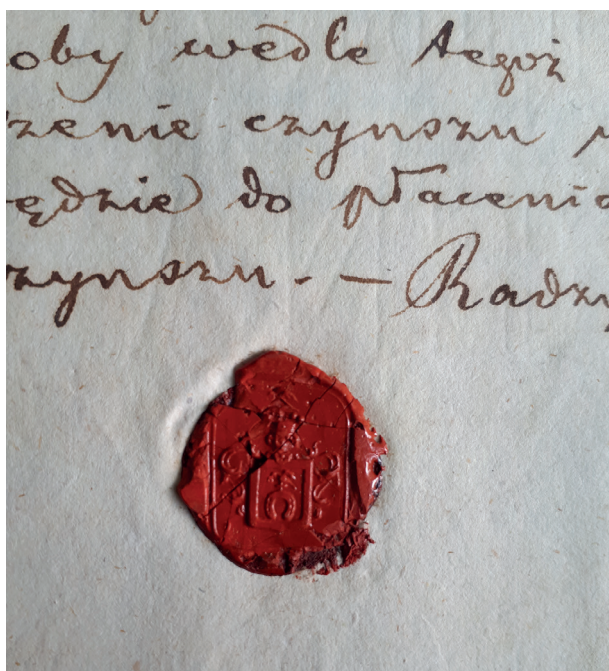 oby wedle tegoż
zenie czynszu
ędzie do płacenia
zynszu. — Radzy